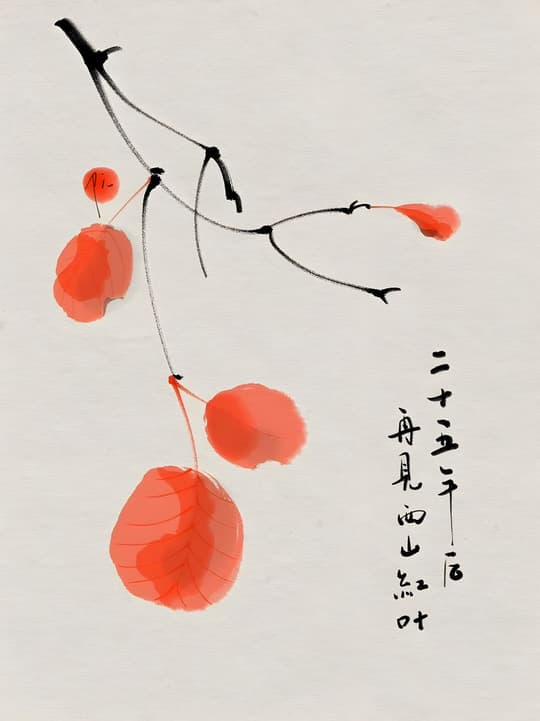 二十五年后
再见西山红叶